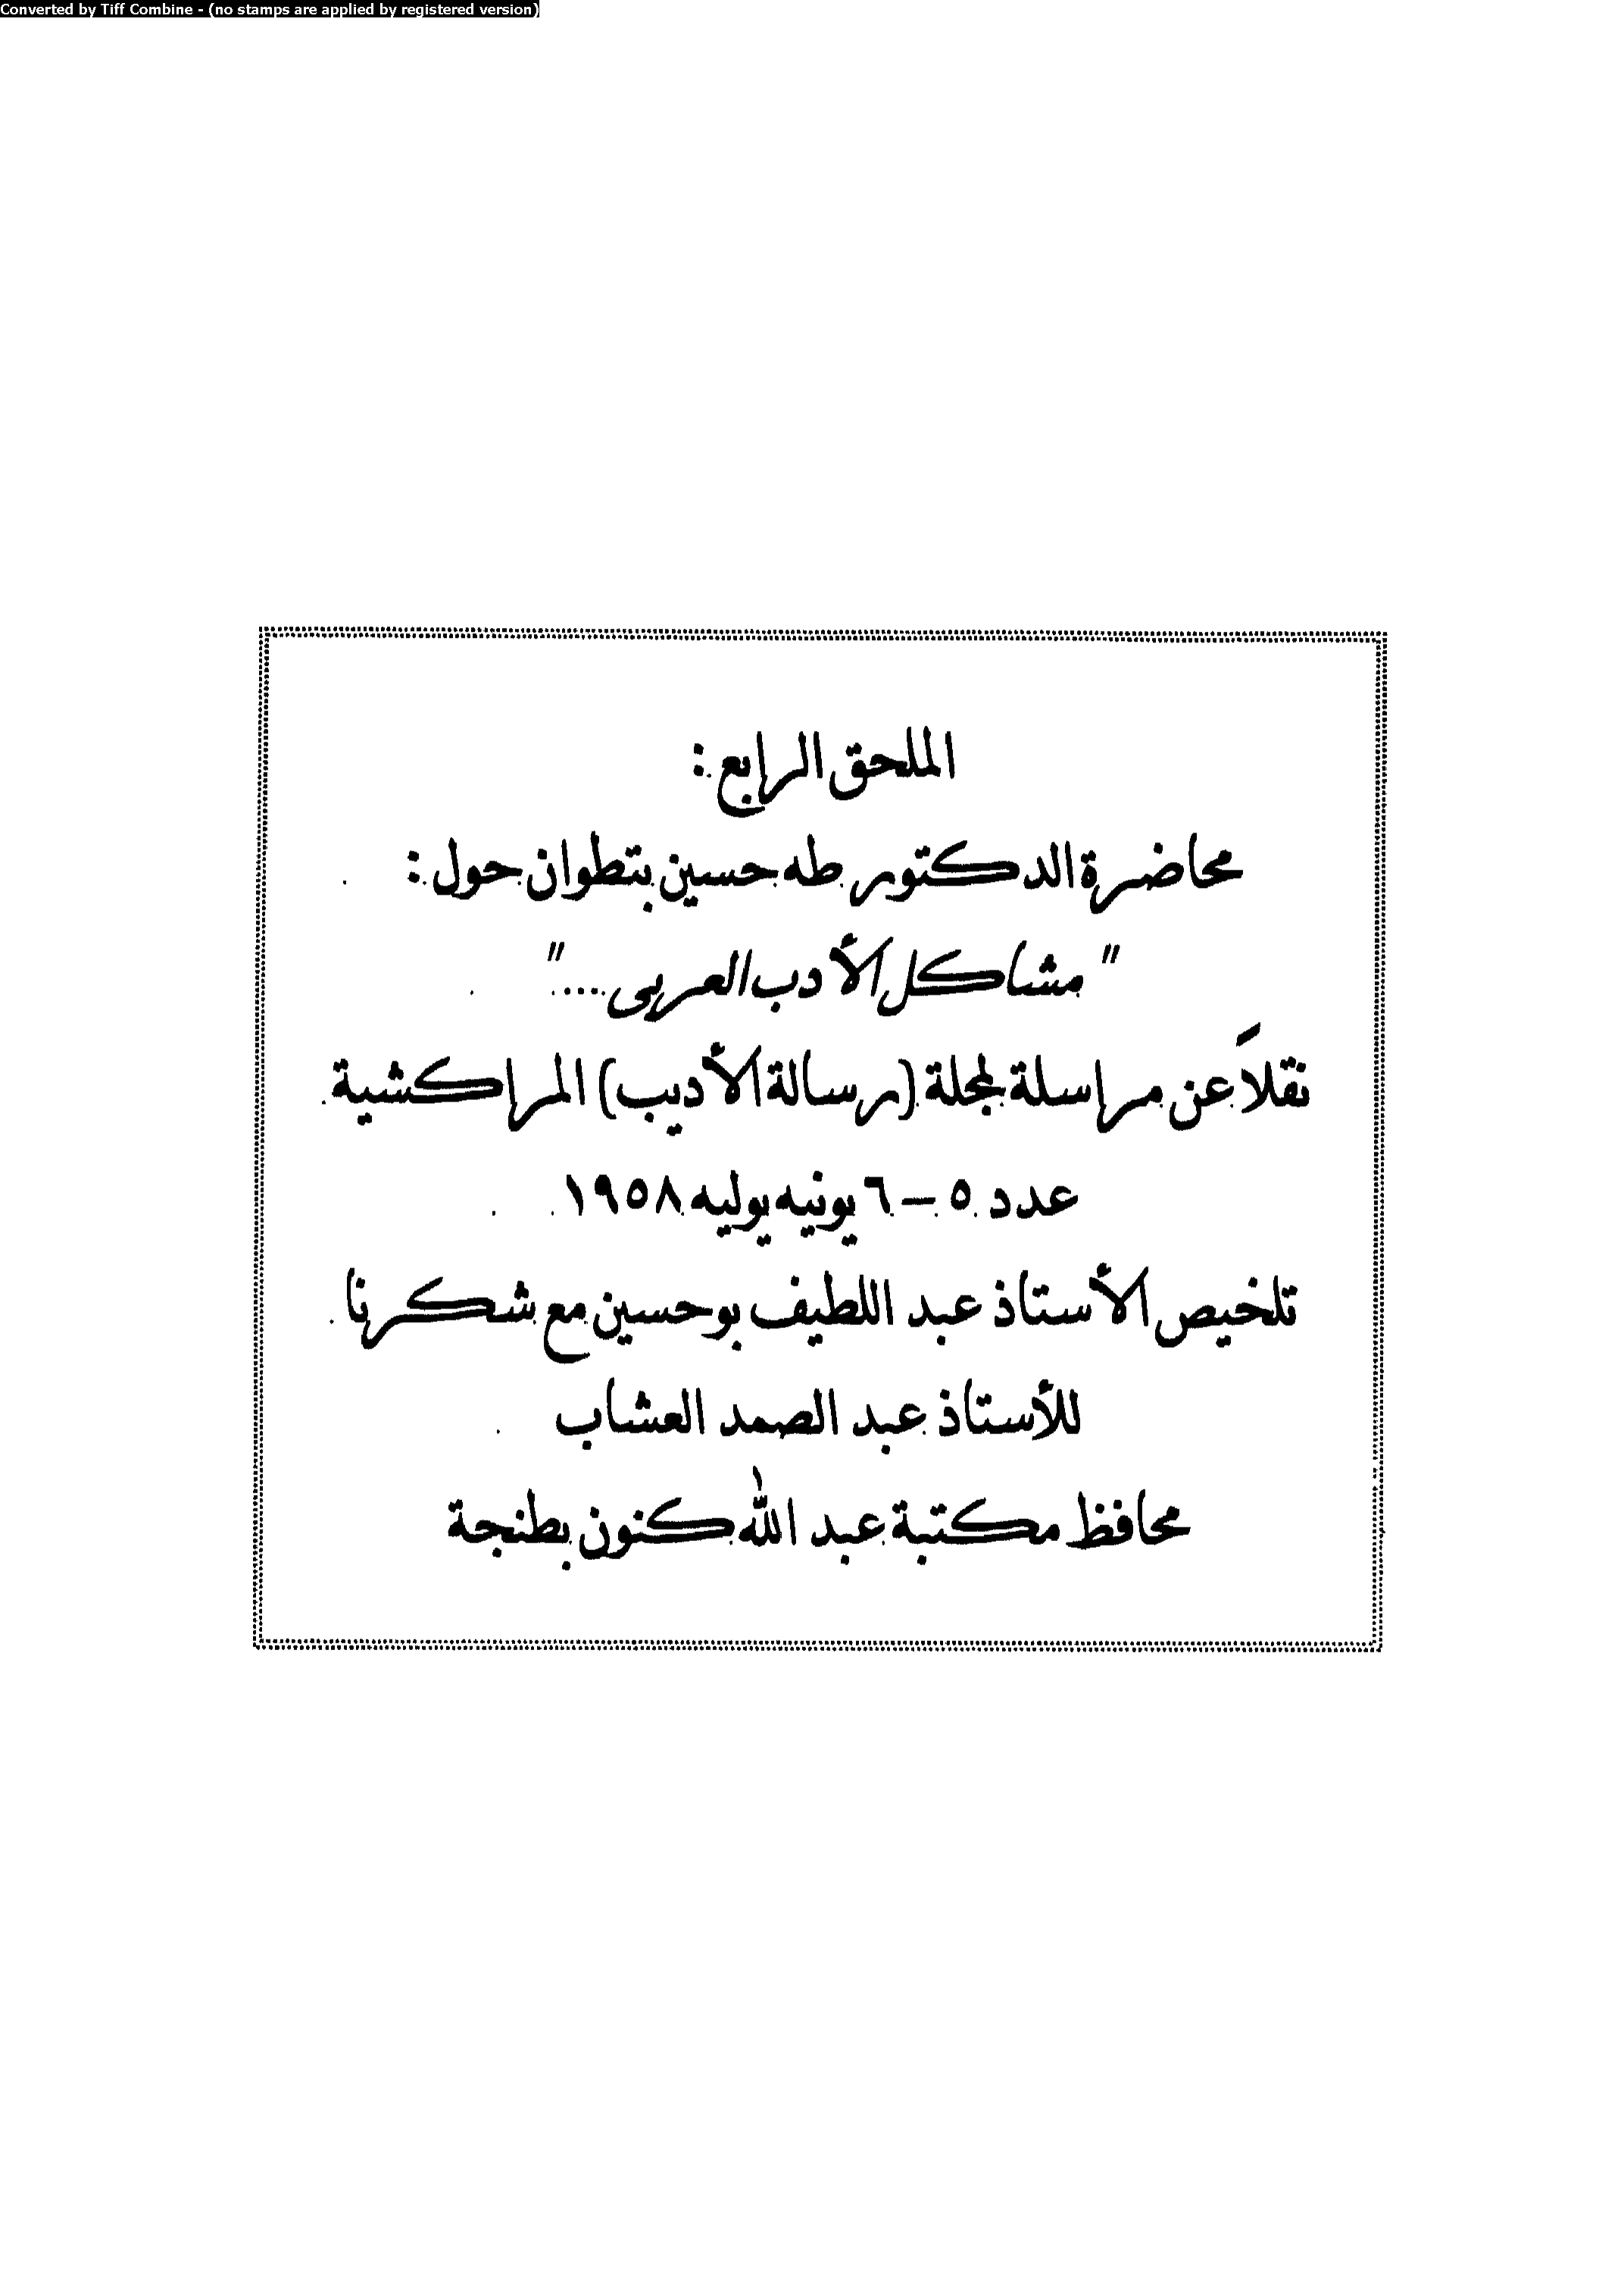 Converted by Tiff Combine - (no stamps are applied by registered version)
الملحق الرابع :
محاضرة الدكتور طه حسين بتطوان حول :
" مشاكل الأدب العربى .... "
نقلاً عن مراسلة لمجلة (رسالة الأديب) المراكشية
عدد ٥ – ٦ يونيه يوليه ١٩٥٨
تلخيص الأستاذ عبد اللطيف بوحسين مع شكرنا
للأستاذ عبد الصمد العشاب
محافظ مكتبة عبد الله كنون بطنجة